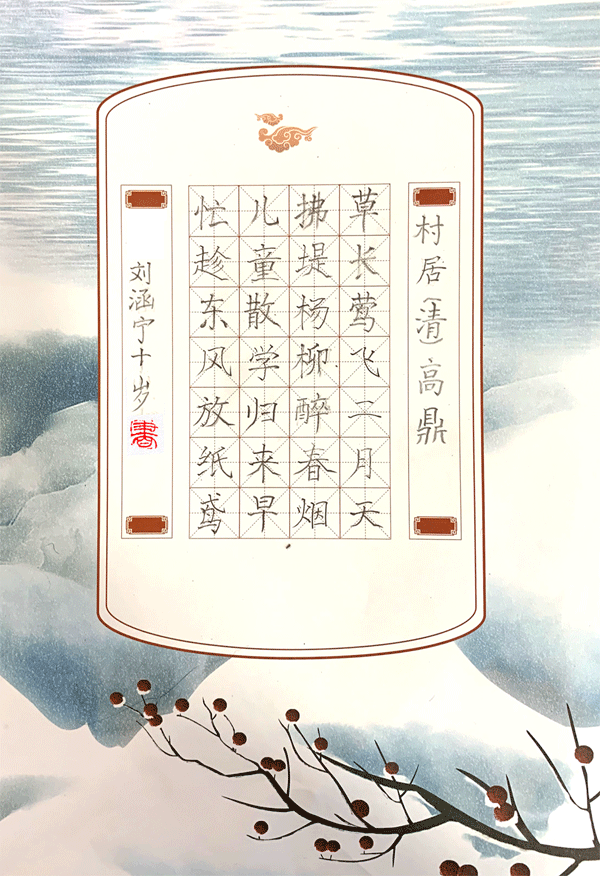 村居（清）高鼎
草长莺飞二月天
拂堤杨柳醉春烟
儿童散学归来早
忙趁东风放纸鸢
刘涵宁十岁
書